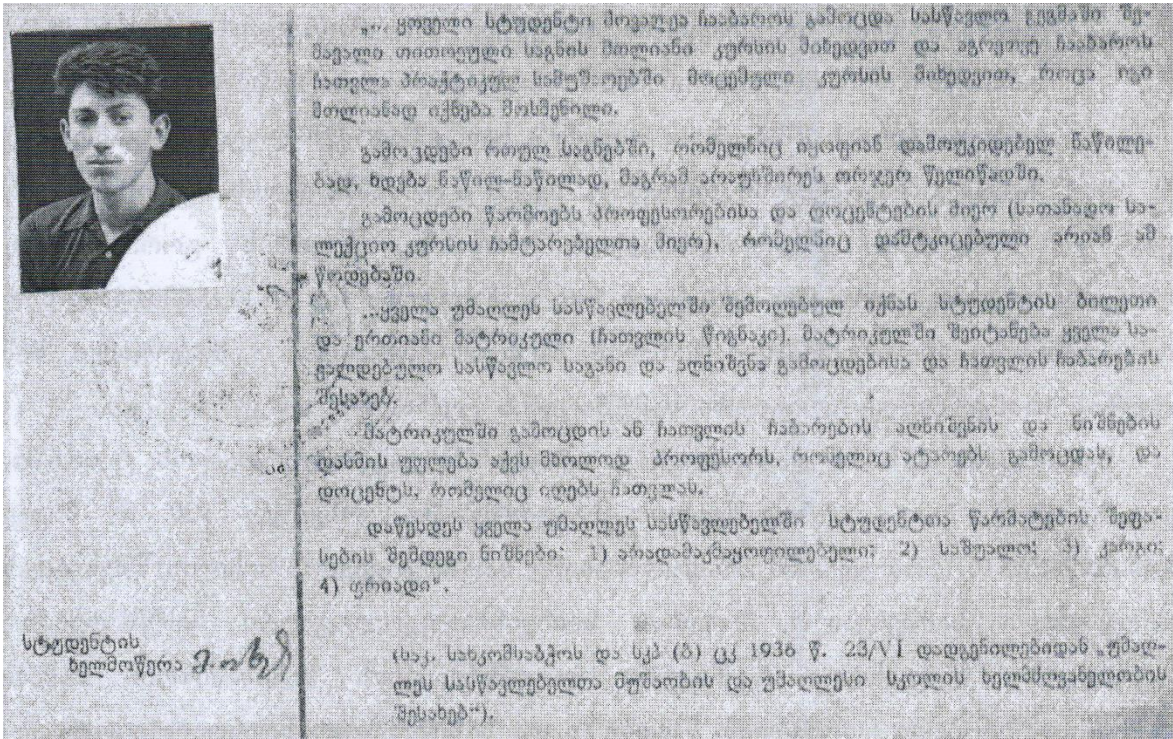 „... ყოველი სტუდენტი მოვალეა ჩააბაროს გამოცდა სასწავლო გეგმაში შე-
მავალი თითოეული საგნის მთლიანი კურსის მიხედვით და აგრეთვე ჩააბაროს
ჩათვლა პრაქტიკულ სამუშაოებში მოცემული კურსის მიხედვით, როცა იგი
მთლიანად იქნება მოსმენილი.
გამოცდები რთულ საგნებში, რომელნიც იყოფიან დამოუკიდებელ ნაწილე-
ბად, ხდება ნაწილ-ნაწილად, მაგრამ არაუხშირეს ორჯერ წელიწადში.
გამოცდები წარმოებს პროფესორებისა და დოცენტების მიერ (სათანადო სა-
ლექციო კურსის ჩამტარებელთა მიერ), რომელნიც დამტკიცებული არიან ამ
წოდებაში.
...ყველა უმაღლეს სასწავლებელში შემოღებულ იქნას სტუდენტის ბილეთი
და ერთიანი მატრიკული (ჩათვლის წიგნაკი). მატრიკულში შეიტანება ყველა სა-
ვალდებულო სასწავლო საგანი და აღნიშვნა გამოცდებისა და ჩათვლის ჩაბარების
შესახებ.
მატრიკულში გამოცდის ან ჩათვლის ჩაბარების აღნიშვნის და ნიშნების
დასმის უფლება აქვს მხოლოდ პროფესორს, რომელიც ატარებს გამოცდას, და
დოცენტს, რომელიც იღებს ჩათვლას.
დაწესდეს ყველა უმაღლეს სასწავლებელში სტუდენტთა წარმატების შეფა-
სების შემდეგი ნიშნები: 1) არადამაკმაყოფილებელი; 2) საშუალო; 3) კარგი;
4) ფრიადი“.
სტუდენტის
ხელმოწერა
(საკ. სახკომსაბჭოს და სკპ (ბ) ცკ 1936 წ. 23/VI დადგენილებიდან „უმაღ-
ლეს სასწავლებელთა მუშაობის და უმაღლესი სკოლის ხელმძღვანელობის
შესახებ“).